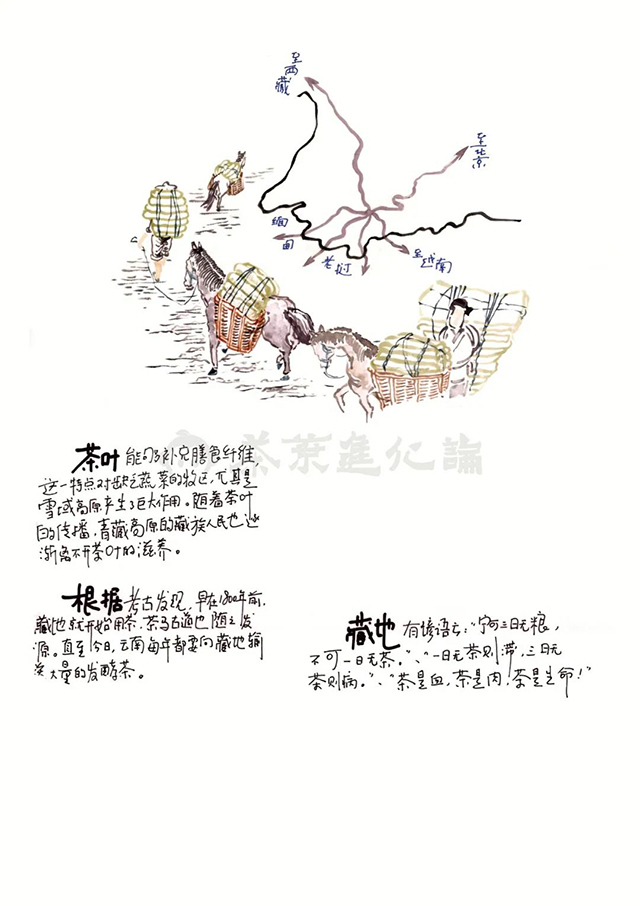 至西藏
至北京
缅甸
老挝
至越南
茶葉進化論
茶叶 能够补充膳食纤维,
这一特点对缺乏蔬菜的牧区,尤其是
雪域高原产生了巨大作用。随着茶叶
的传播,青藏高原的藏族人民也逐
渐离不开茶叶的滋养。
根据 考古发现,早在1800年前,
藏地就开始用茶,茶马古道也随之发
源。直至今日,云南每年都要向藏地输
送大量的发酵茶。
藏地 有谚语云:“宁可三日无粮,
不可一日无茶。”、“一日无茶则滞,三日无
茶则病。”、“茶是血,茶是肉,茶是生命!”